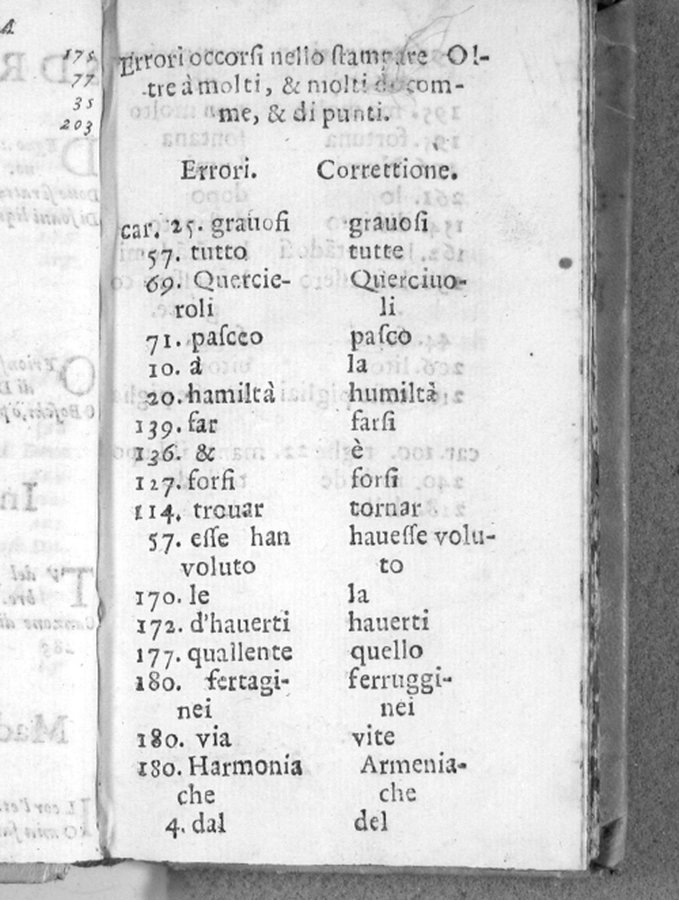 A
175
77
35
203
Errori occorſi nello ſtampare Ol-
tre à molti, & molti di com-
me, & di punti.
Errori. Correttione.
car. 25. grauoſi grauoſi
57. tutto tutte
69. Quercie- Querciuo-
roli li
71. paſceo paſco
10. à la
20. hamiltà humiltà
139. far farſi
136. & è
127. forſi forſi
114. trouar tornar
57. eſſe han haueſſe volu-
voluto to
170. le la
172. d'hauerti hauerti
177. quallente quello
180. fertagi- ferruggi-
nei nei
180. via vite
180. Harmonia Armenia-
che che
4. dal del